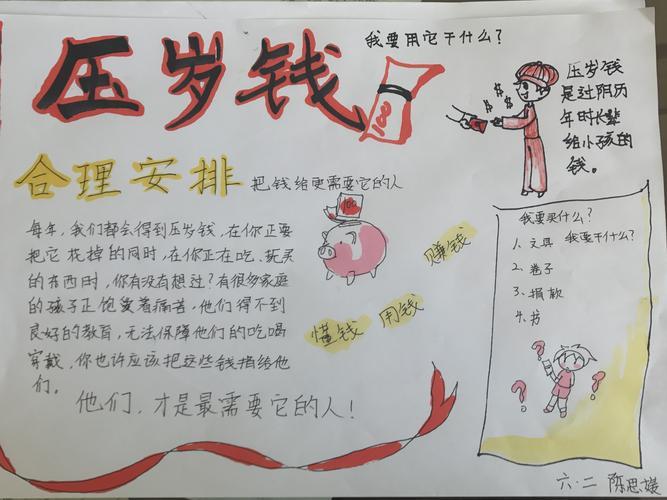 压岁钱
我要用它干什么？
压岁钱
是过阴历
年时长辈
给小孩的
钱。
合理安排
把钱给更需要它的人
每年，我们都会得到压岁钱，在你正要
把它花掉的同时，在你正在吃、玩灵
的东西时，你有没有想过？有很多家庭
的孩子正饱爱着痛苦，他们得不到
良好的教育，无法保障他们的吃喝
穿戴，你也许应该把这些钱捐给他
们。
他们，才是最需要它的人！
100
100
赚钱
懂钱
用钱
我要买什么？
1、文具 我要干什么？
2、卷子
3、捐款
4、书
六·二 陈思媛